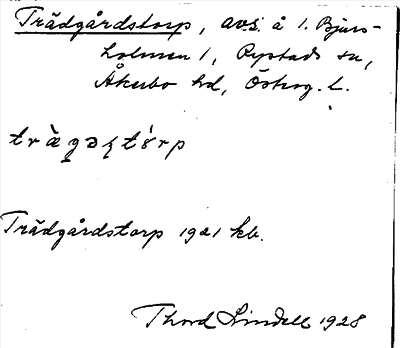 Trädgårdstorp, avs. å 1. Bjurs-
holmen 1, Rystads sn,
Åkerbo hd, Östrog. L.
Trädgårdstorp 1921 kb.
Thord Lindell 1928